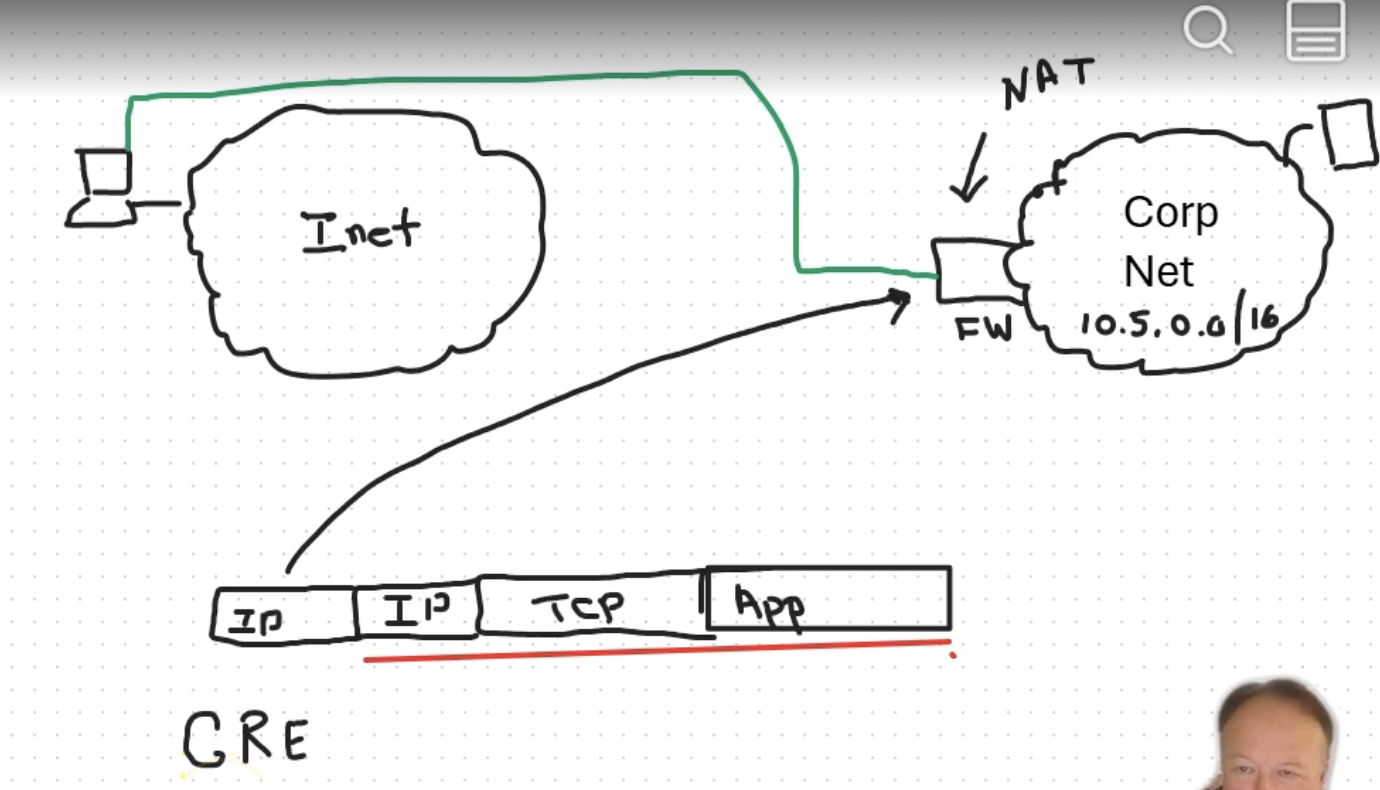 NAT
Inet
Corp
Net
10.5.0.0/16
FW
IP IP TCP App
GRE